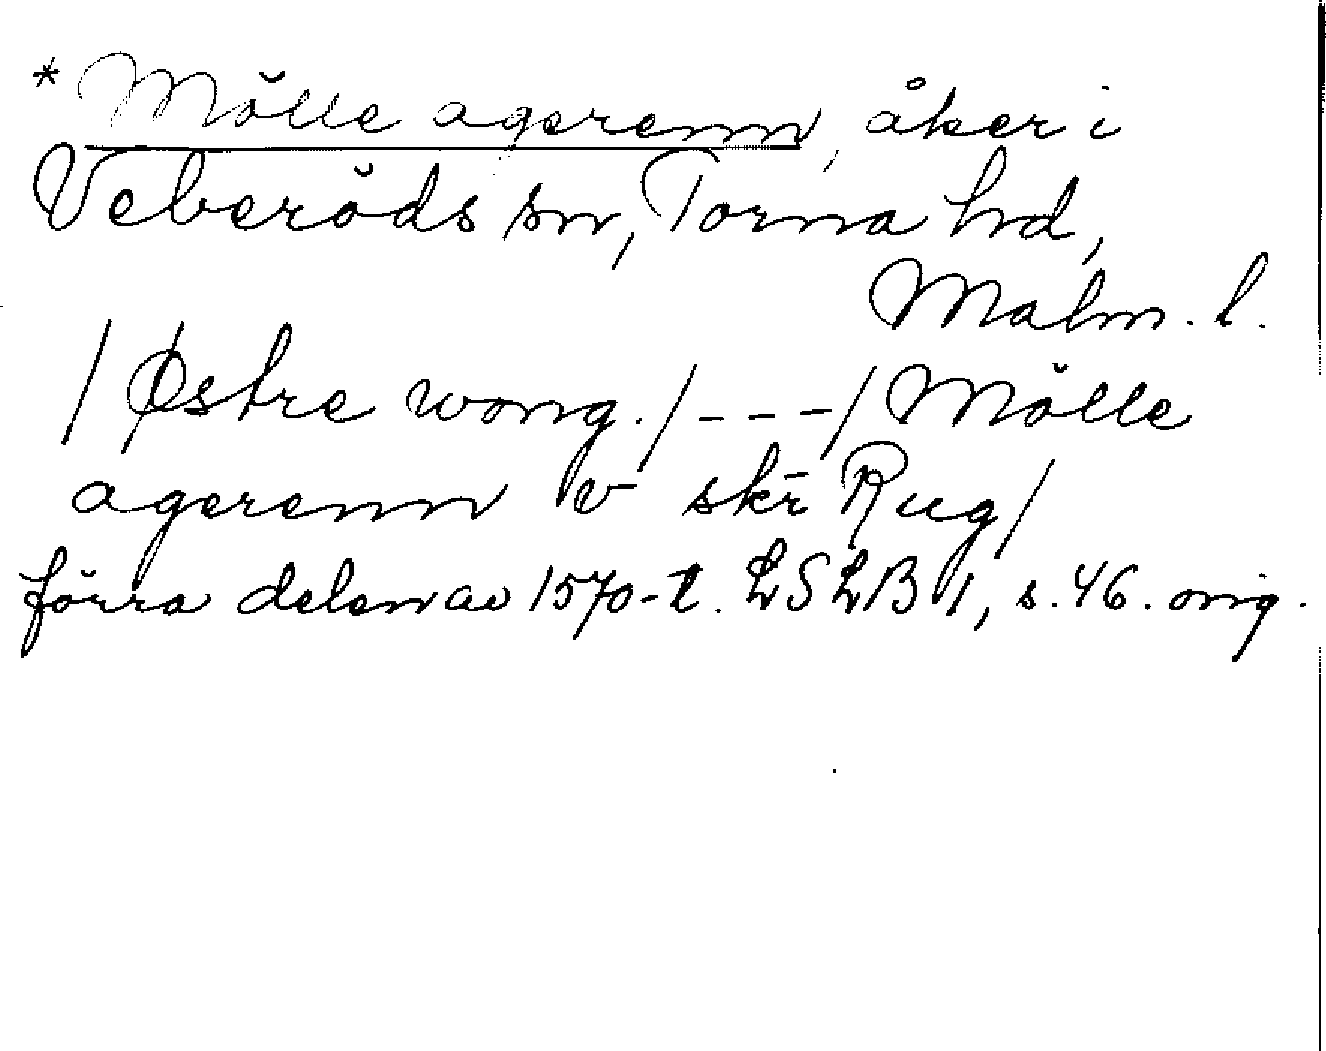 * Mölle agerenn, åker i
Veberöds sn, Torna hd,
Malm. l.
/Østre wong./---/Mölle
agerenn v skr̄ Rug/
förra delen av 1570-t. LSLB 1, s. 46. orig.